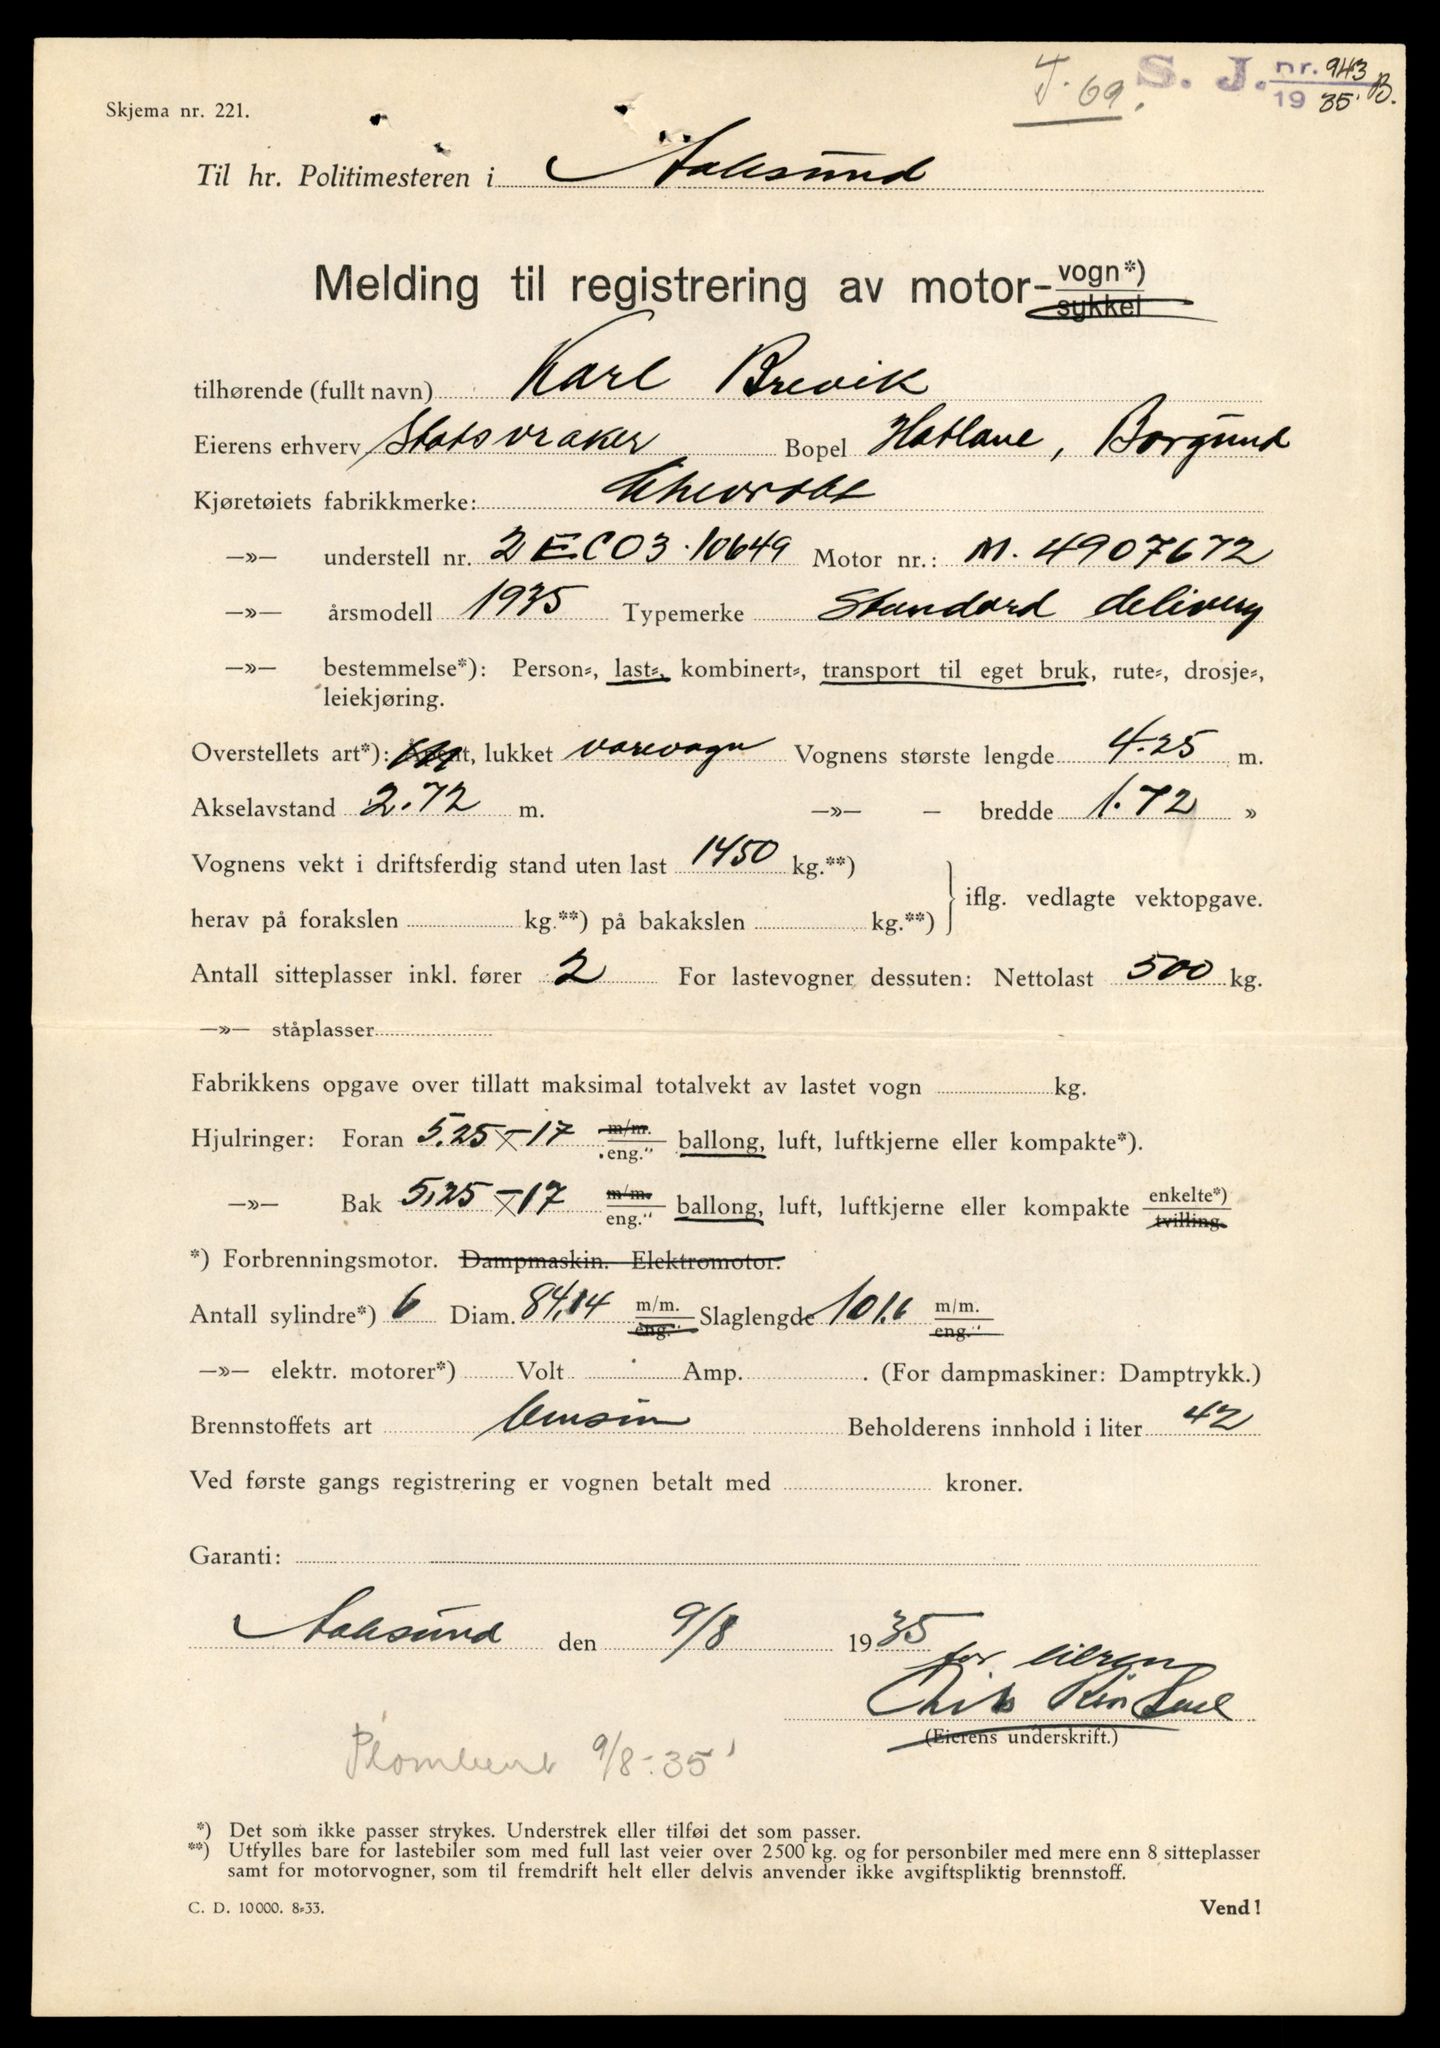 T. 69. S. J. nr. 943 B.
19 35
Skjema nr. 221.
Til hr. Politimesteren i Aalesund
Melding til registrering av motor- vogn*)
sykkel
tilhørende (fullt navn) Karl Brevik
Eierens erhverv Statsvraker Bopel Hatlane, Borgund
Kjøretøiets fabrikkmerke: Chevrolet
—»— understell nr. 2 EC03-10649 Motor nr.: M. 4907672
—»— årsmodell 1935 Typemerke Standard delivery
—»— bestemmelse*): Person-, last-, kombinert-, transport til eget bruk, rute-, drosje-,
leiekjøring.
Overstellets art*): Åpent, lukket varevogn Vognens største lengde 4.25 m.
Akselavstand 2.72 m. —»— — bredde 1.72 »
Vognens vekt i driftsferdig stand uten last 1450 kg.**)
iflg. vedlagte vektopgave.
herav på forakslen kg.**) på bakakslen kg.**)
Antall sitteplasser inkl. fører 2 For lastevogner dessuten: Nettolast 500 kg.
—»— ståplasser
Fabrikkens opgave over tillatt maksimal totalvekt av lastet vogn kg.
Hjulringer: Foran 5.25 × 17 m/m. eng." ballong, luft, luftkjerne eller kompakte*).
—»— Bak 5.25 × 17 m/m. eng." ballong, luft, luftkjerne eller kompakte enkelte*) tvilling.
*) Forbrenningsmotor. Dampmaskin. Elektromotor.
Antall sylindre*) 6 Diam. 84,14 m/m. eng." Slaglengde 101.6 m/m. eng."
—»— elektr. motorer*) Volt Amp. . (For dampmaskiner: Damptrykk.)
Brennstoffets art bensin Beholderens innhold i liter 42
Ved første gangs registrering er vognen betalt med kroner.
Garanti:
Aalesund den 9/8 1935
for eieren
(Eierens underskrift.)
Plombert 9/8-35
*) Det som ikke passer strykes. Understrek eller tilføi det som passer.
**) Utfylles bare for lastebiler som med full last veier over 2500 kg. og for personbiler med mere enn 8 sitteplasser
samt for motorvogner, som til fremdrift helt eller delvis anvender ikke avgiftspliktig brennstoff.
C. D. 10000. 8-33. Vend!